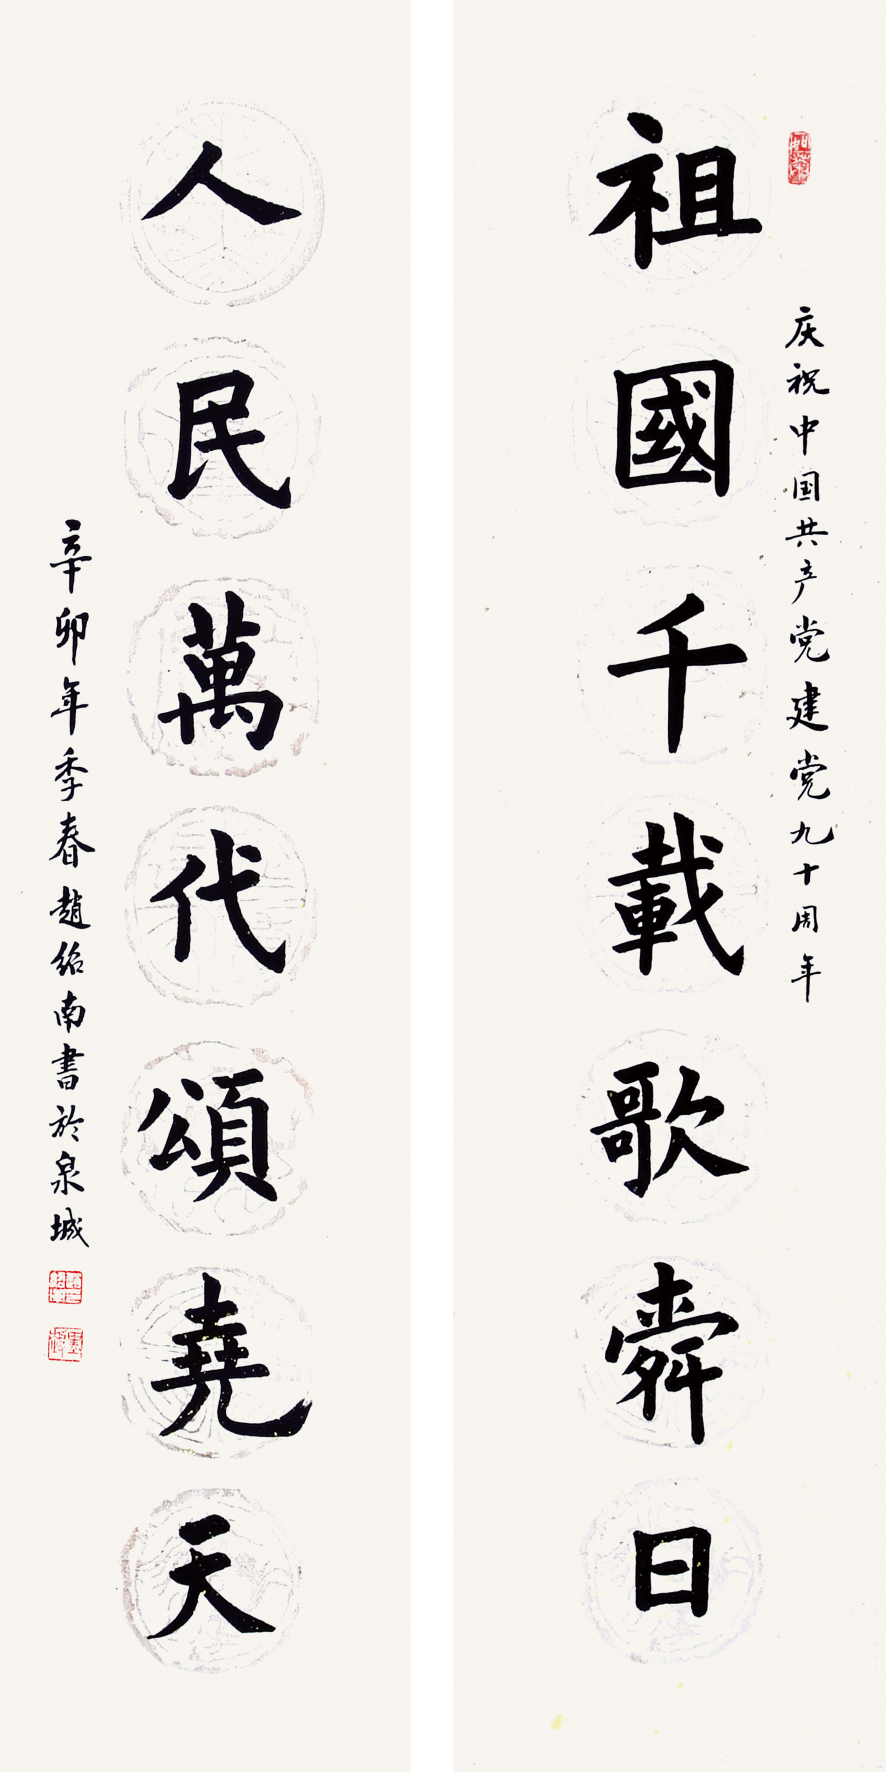 庆祝中国共产党建党九十周年
祖國千載歌舜日
人民萬代頌堯天
辛卯年季春趙紹南書於泉城